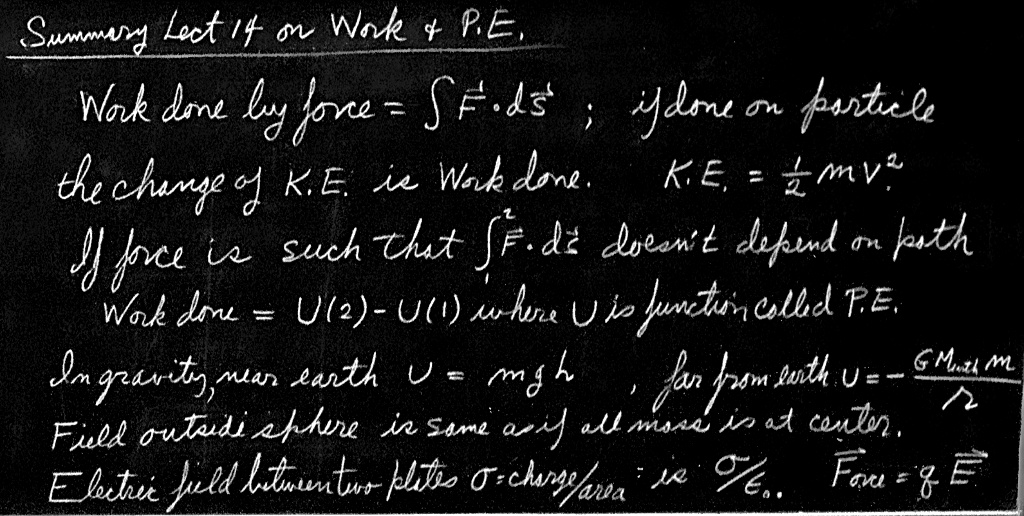 Summary Lect 14 on Work & P.E.
Work done by force = ∫ F⃗·ds⃗ ; if done on particle
the change of K.E. is Work done. K.E. = ½ mv².
If force is such that ∫₁² F⃗·ds⃗ doesn't depend on path
Work done = U(2)-U(1) where U is function called P.E.
In gravity, near earth U = mgh , far from earth U = - GMearth m / r
Field outside sphere is same as if all mass is at center.
Electric field between two plates σ=charge/area is σ/ε₀. Force = qE⃗